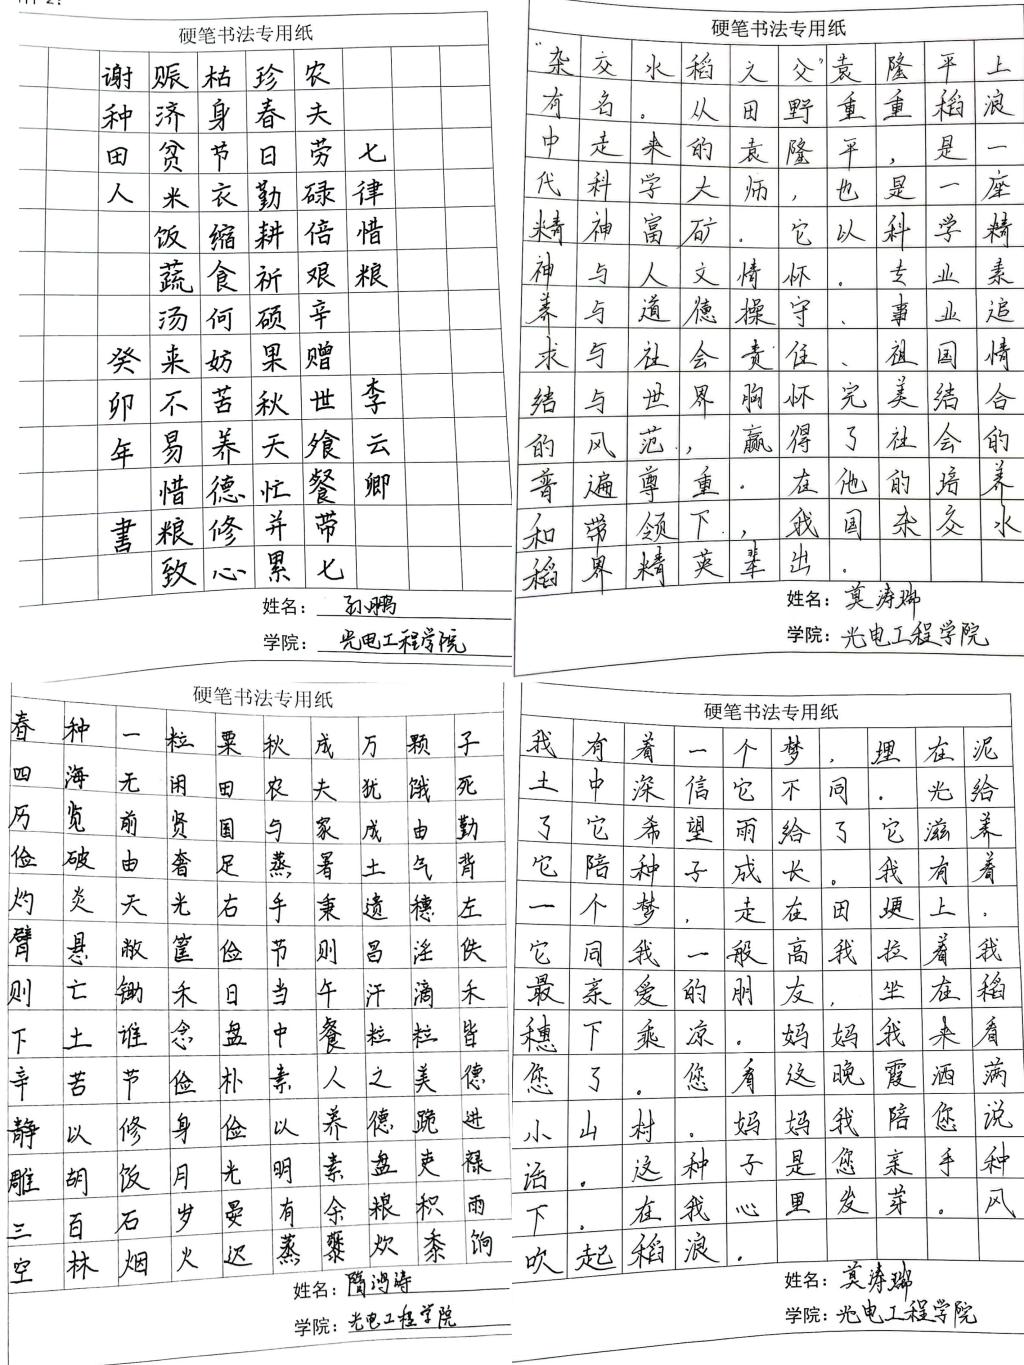 硬笔书法专用纸
七律惜粮 李云卿
农夫劳碌倍艰辛赠世飧餐带七
珍春日勤耕祈硕果秋天忙并累
枯身节衣缩食何妨苦养德修心
赈济贫米饭蔬汤来不易惜粮致
谢种田人 癸卯年 書
姓名：孙鹏
学院：光电工程学院
硬笔书法专用纸
“杂交水稻之父”袁隆平上
有名。从田野重重稻浪
中走来的袁隆平，是一
代科学大师，也是一座
精神富矿。它以科学精
神与人文情怀。专业素
养与道德操守、事业追
求与社会责任、祖国情
结与世界胸怀完美结合
的风范，赢得了社会的
普遍尊重。在他的培养
和带领下，我国杂交水
稻界精英辈出。
姓名：莫涛瑞
学院：光电工程学院
硬笔书法专用纸
春种一粒粟秋成万颗子
四海无闲田农夫犹饿死
历览前贤国与家成由勤
俭破由奢足蒸暑土气背
灼炎天光右手秉遗穗左
臂悬敝筐俭节则昌淫佚
则亡锄禾日当午汗滴禾
下土谁念盘中餐粒粒皆
辛苦节俭朴素人之美德
静以修身俭以养德跪进
雕胡饭月光明素盘吏禄
三百石岁晏有余粮积雨
空林烟火迟蒸藜炊黍饷
姓名：隋鸿涛
学院：光电工程学院
硬笔书法专用纸
我有着一个梦，埋在泥
土中深信它不同。光给
了它希望雨给了它滋养
它陪种子成长。我有着
一个梦，走在田埂上，
它同我一般高我拉着我
最亲爱的朋友，坐在稻
穗下乘凉。妈妈我来看
您了。您看这晚霞洒满
小山村。妈妈我陪您说
话。这种子是您亲手种
下。在我心里发芽。风
吹起稻浪。
姓名：莫涛瑞
学院：光电工程学院